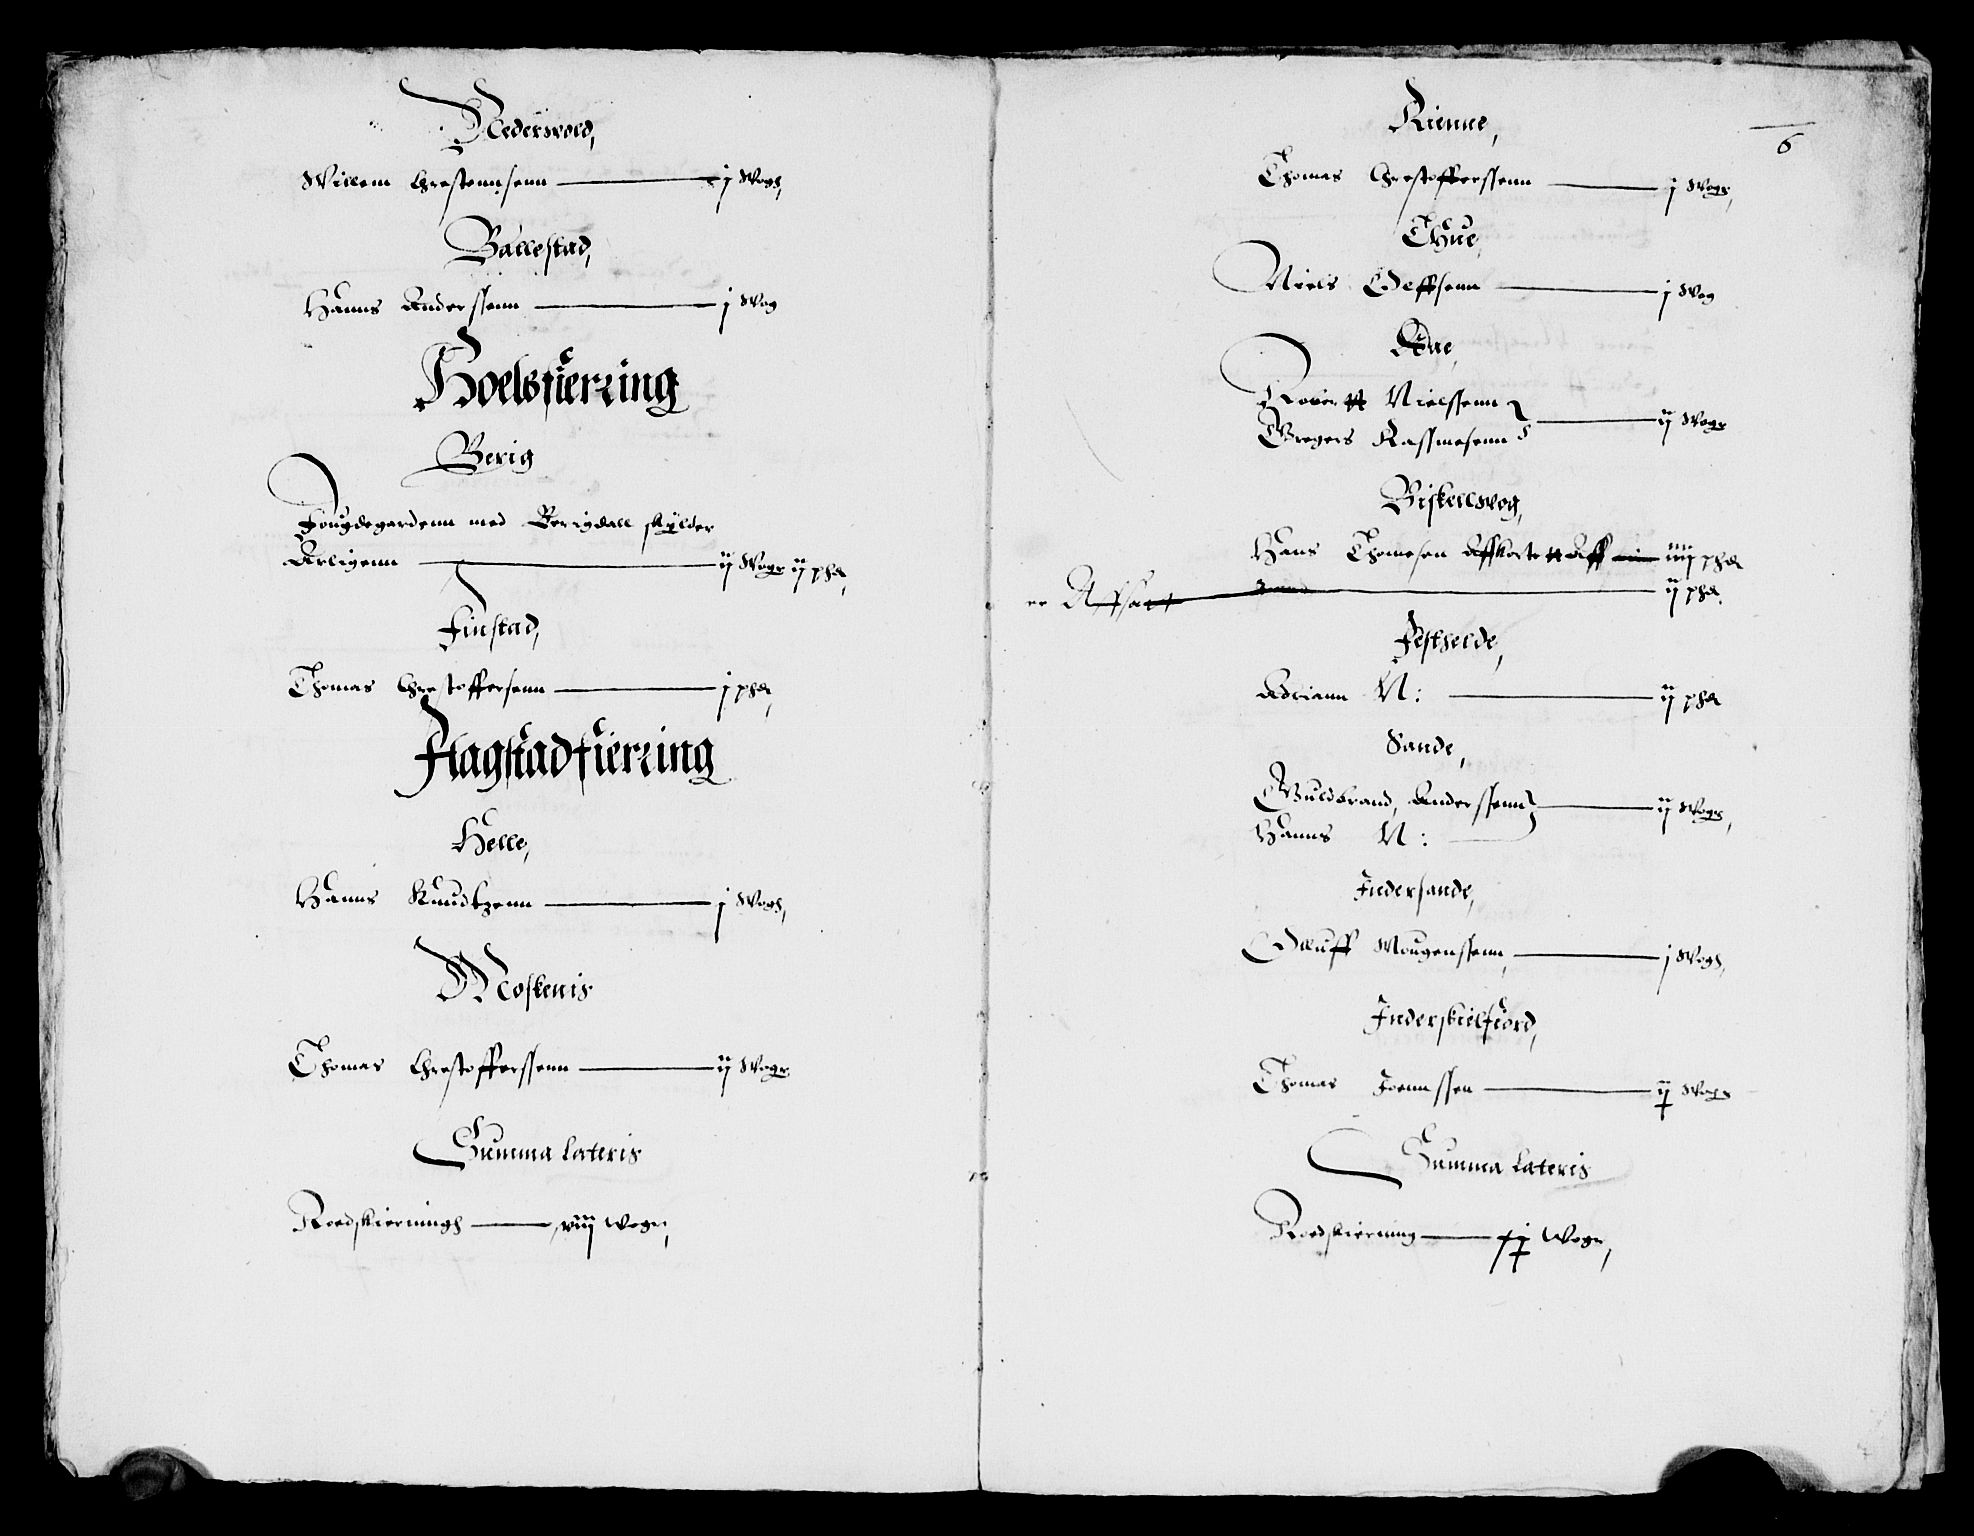 Nederwold,
Willem Chrestennsenn — j Wogh,
Ballestad,
Hanns Anderssenn — j Wog
Boelsfierring
Berig
Fougdegardenn med Berigdall skylder
Arligenn — ij Wogr ij phd,
Finstad,
Thomas Chrestoffersenn — j phd,
Flagstadfierring
Helle,
Hanns Knudtzenn — j Wogh,
Moskenis
Thomas Chrestofferssenn — ij Wogr
Summa Lateris
Roedskierningh — viij Wogr,
6
Rienne,
Thomas Chrestofferssenn — j Wogr,
Thue,
Niels Oeffsenn — j Wog
Aae,
Nielssenn
Gregers Rassmesenn — ij Wogr
Biskellwog,
Hans Thomesen — iiij phd
er — ij phd.
Festhelde,
Adriann N: — ij phd
Sande,
Guldbrand, Anderssenn — ij Wogr,
Hanns N:
Indersande,
Oluff Mougenssenn, — j Wogh,
Inderskielfiord,
Thomas Joenssen — ij Wogr
Summa Lateris
Roedskierning — Wogr,